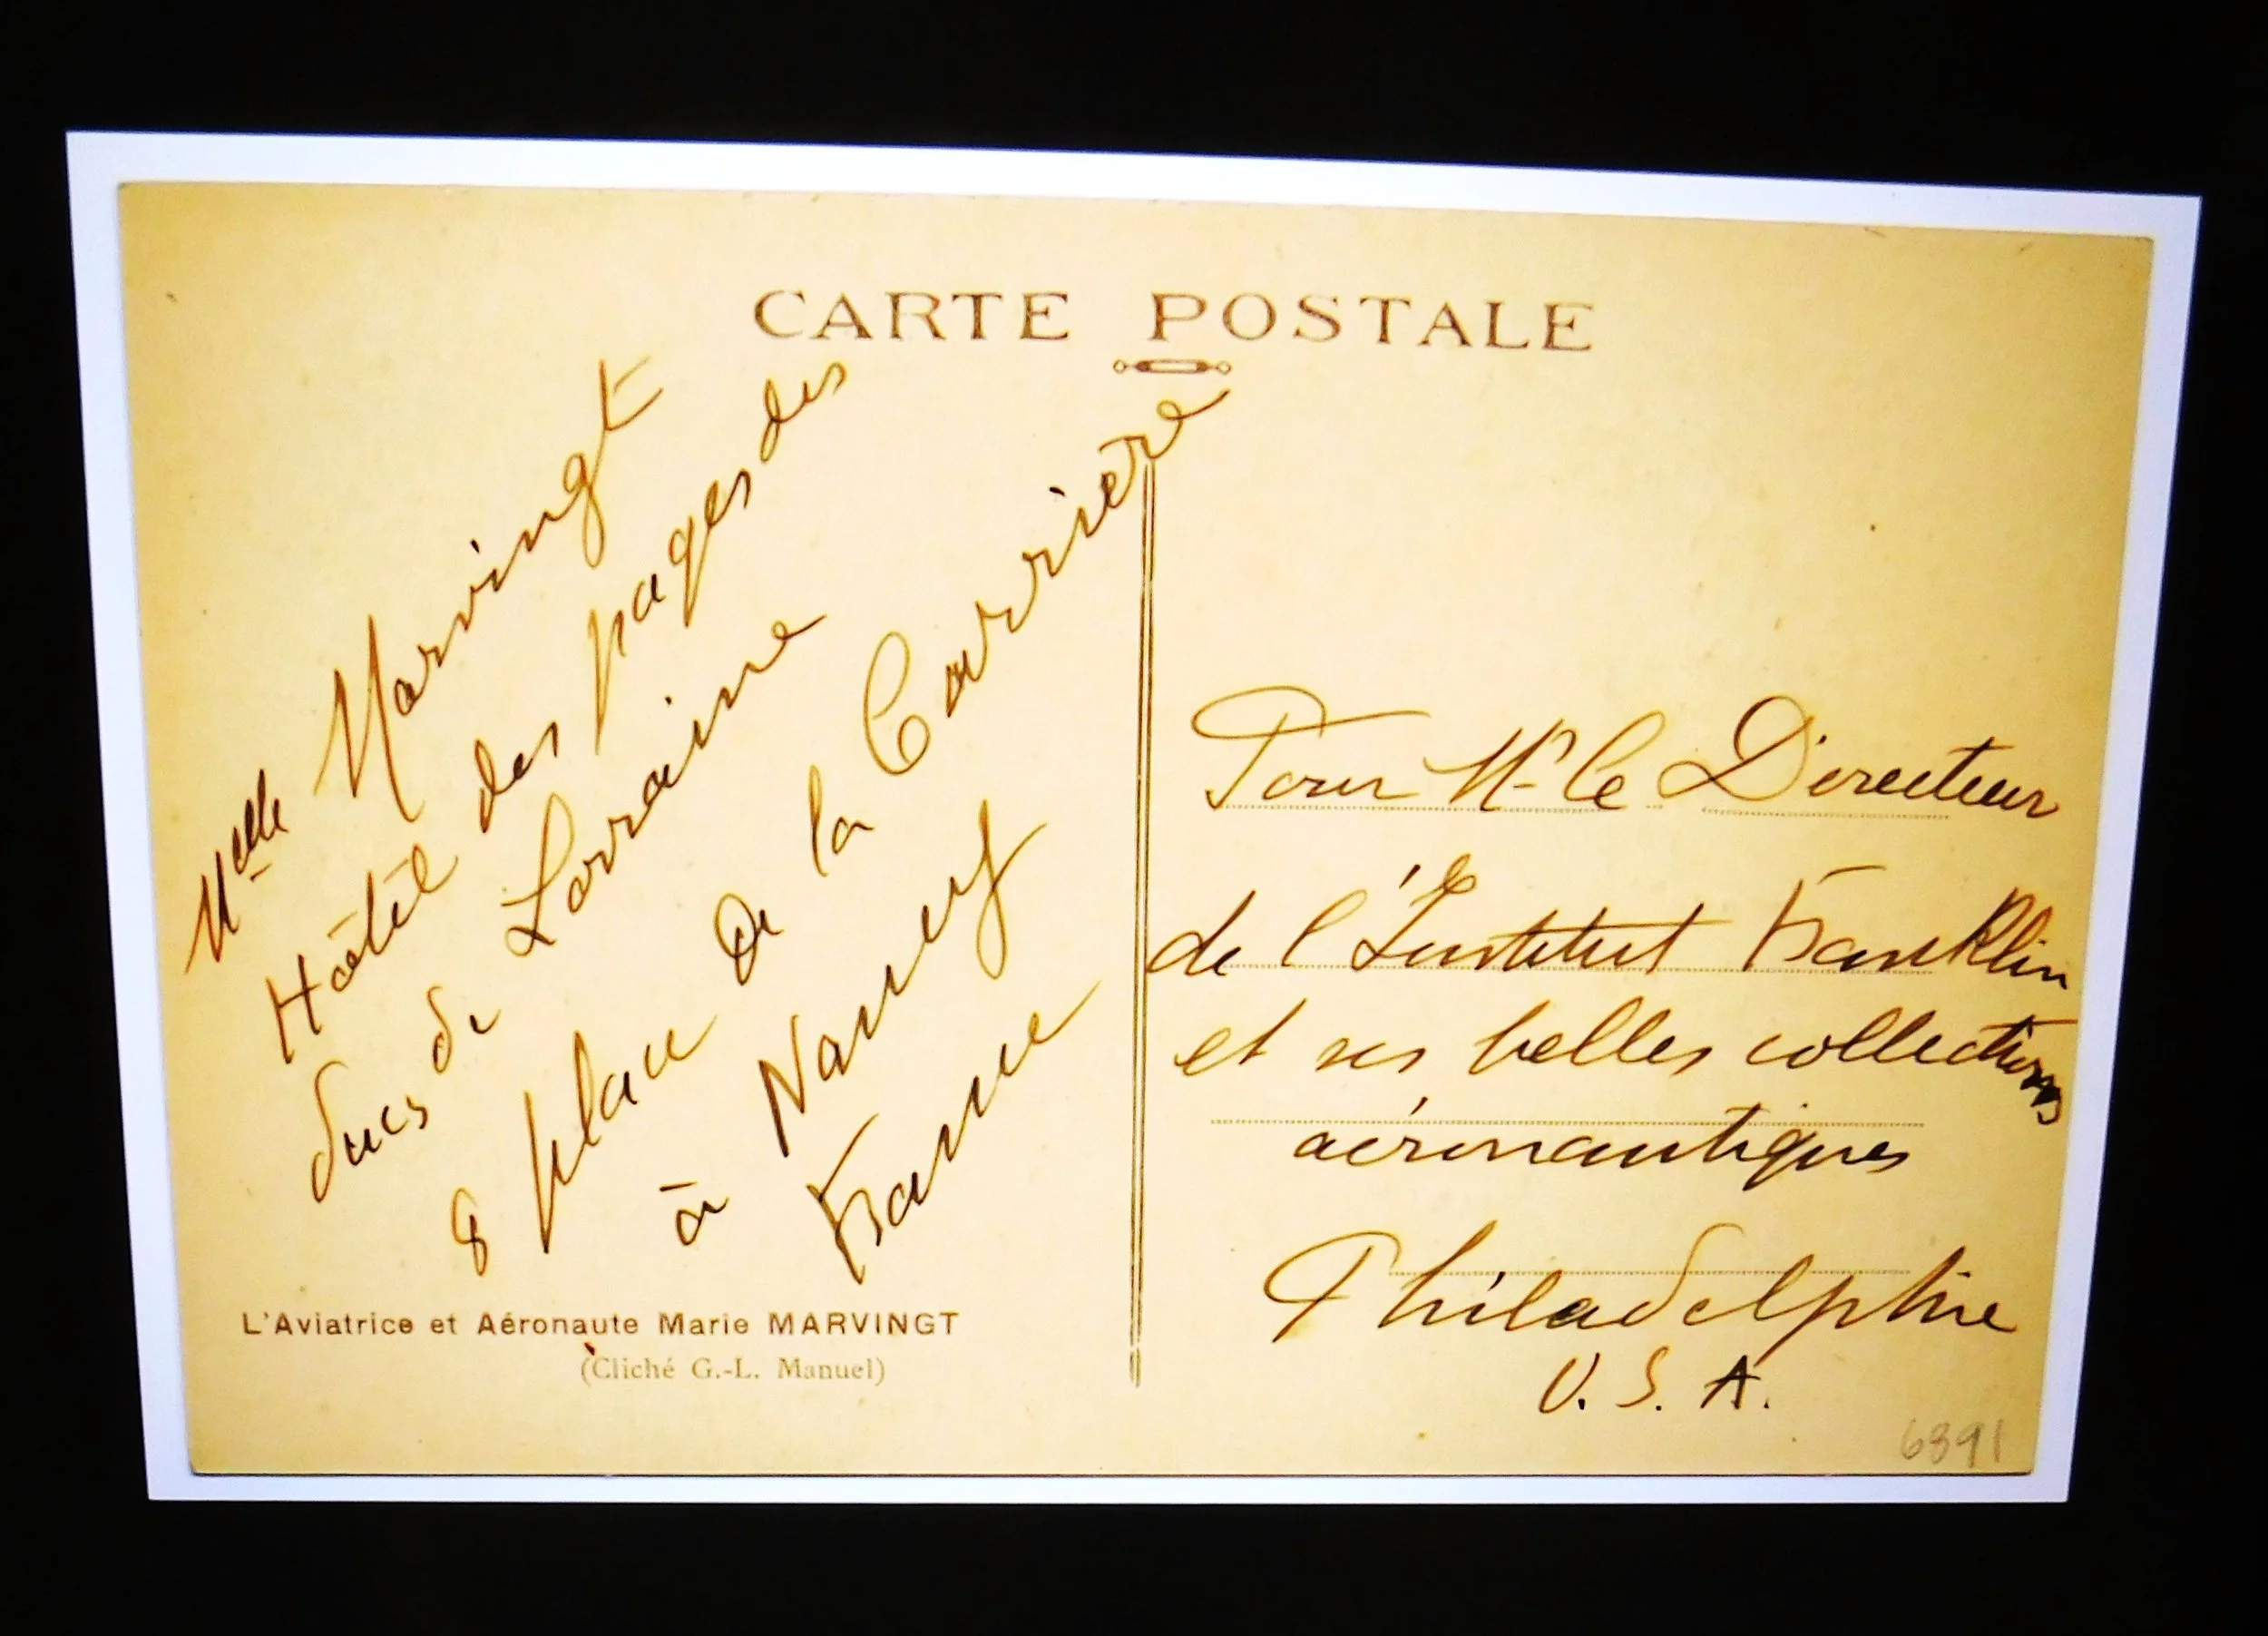 CARTE POSTALE
Melle Marvingt
Hôtel des pages des
ducs de Lorraine
8 place de la Carrière
à Nancy
France
L'Aviatrice et Aéronaute Marie MARVINGT
(Cliché G.-L. Manuel)
Pour Mr le Directeur
de l'Institut Franklin
et ses belles collections
aéronautiques
Philadelphie
U. S. A.
6891